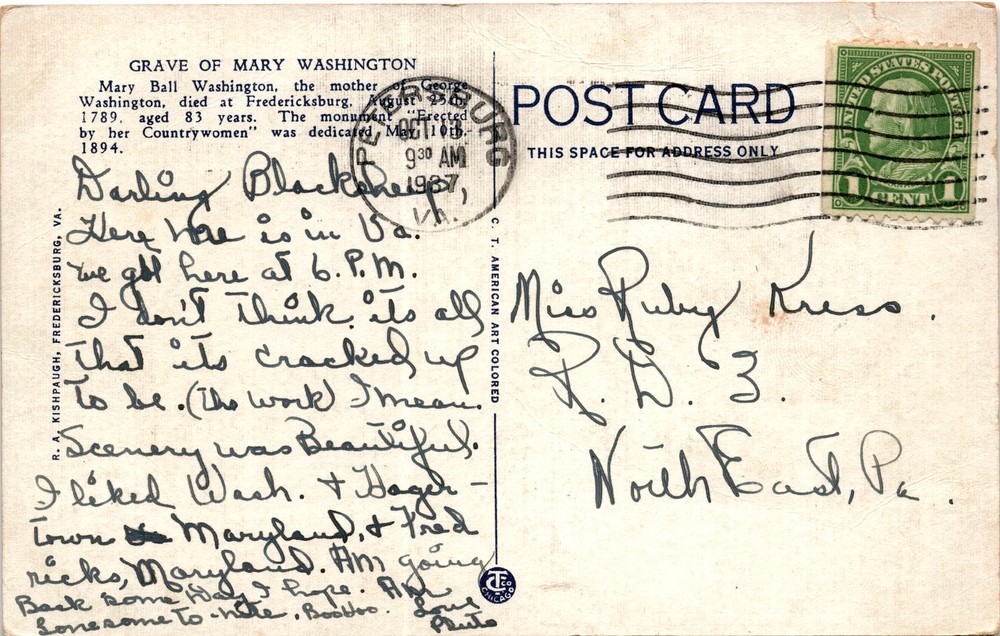 GRAVE OF MARY WASHINGTON
Mary Ball Washington, the mother of George
Washington, died at Fredericksburg, August 25th,
1789, aged 83 years. The monument "Erected
by her Countrywomen" was dedicated May 10th,
1894.
PETERSBURG
OCT 13
9 30 AM
1937
VA.
POST CARD
THIS SPACE FOR ADDRESS ONLY
UNITED STATES POSTAGE
1 CENT 1
Darling Blacksheep,
Here is in Va.
we got here at 6. P.M.
I don't think its all
that its cracked up
to be. (the work) I mean.
Scenery was Beautiful.
I liked Wash. & Hager-
town Maryland, & Fred
ricks, Maryland. Am going
Back some day I hope. Am
Lonesome to-nite. BooHoo. Love
Pluto
Miss Ruby Kress.
R. D. 3.
North East, Pa.
R. A. KISHPAUGH, FREDERICKSBURG, VA.
C. T. AMERICAN ART COLORED
CHICAGO